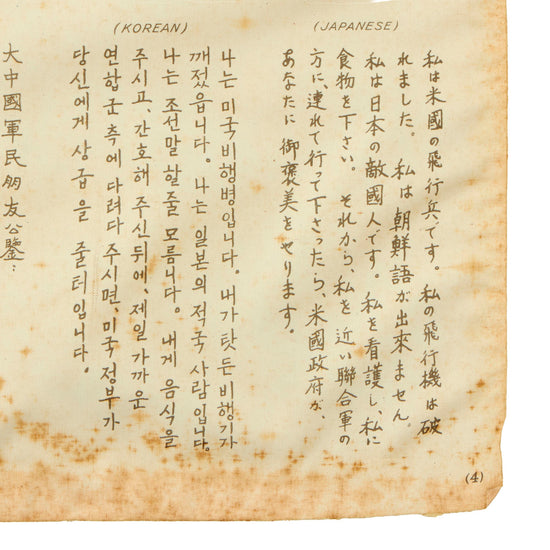 (JAPANESE)
私は米國の飛行兵です。私の飛行機は破
れました。私は朝鮮語が出來ません。
私は日本の敵國人です。私を看護し、私に
食物を下さい。それから、私を近い聯合軍の
方に、連れて行って下さったら、米國政府が、
あなたに御褒美をやります。
(KOREAN)
나는 미국 비행병입니다. 내가 탓든 비행기가
깨젔읍니다. 나는 일본의 적국 사람입니다.
나는 조선말 할줄 모릅니다. 내게 음식을
주시고, 간호해 주신 뒤에, 제일 가까운
연합군 측에 다려다 주시면, 미국 정부가
당신에게 상급을 줄터입니다.
大中國軍民朋友公鑒：
(4)